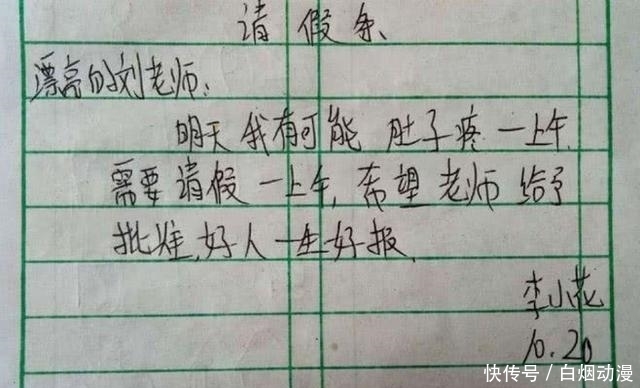 请假条
漂亮的刘老师:
明天我有可能肚子疼一上午
需要请假一上午,希望老师给予
批准,好人一生好报.
李小花
10.20
快传号/白烟动漫